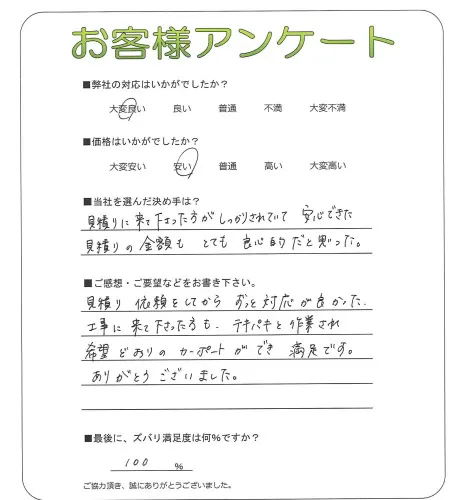 お客様アンケート
■弊社の対応はいかがでしたか?
大変良い 良い 普通 不満 大変不満
■価格はいかがでしたか?
大変安い 安い 普通 高い 大変高い
■当社を選んだ決め手は?
見積りに来て下さった方がしっかりされていて 安心できた
見積りの金額も とても 良心的だと思った。
■ご感想・ご要望などをお書き下さい。
見積り 依頼をしてから ずっと対応が良かった.
工事に来て下さった方も、テキパキと作業され
希望どおりの カーポートができ 満足です。
ありがとうございました。
■最後に、ズバリ満足度は何%ですか?
100 %
ご協力頂き、誠にありがとうございました。